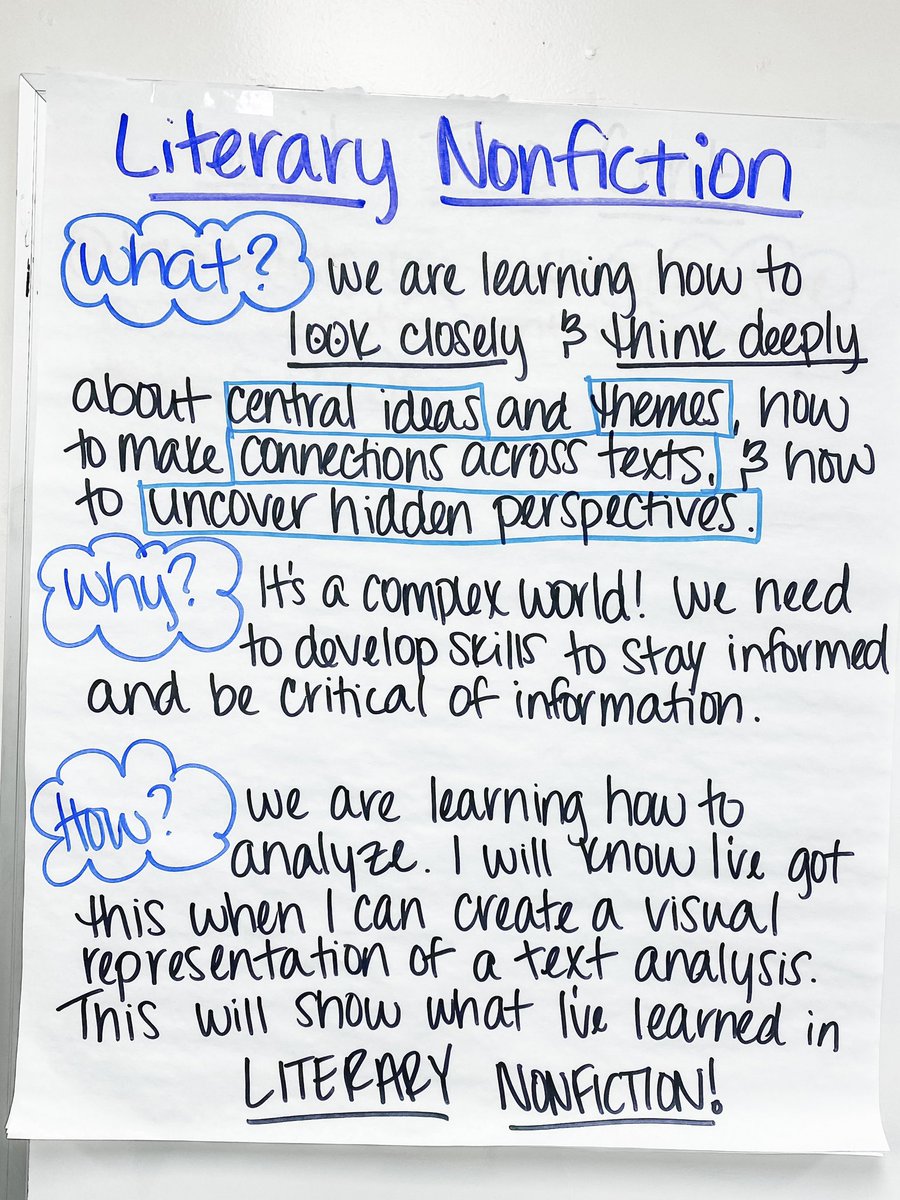 Literary Nonfiction
What? We are learning how to
look closely & think deeply
about central ideas and themes, how
to make connections across texts, & how
to uncover hidden perspectives.
Why? It's a complex world! We need
to develop skills to stay informed
and be critical of information.
How? We are learning how to
analyze. I will know I've got
this when I can create a visual
representation of a text analysis.
This will show what I've learned in
LITERARY NONFICTION!